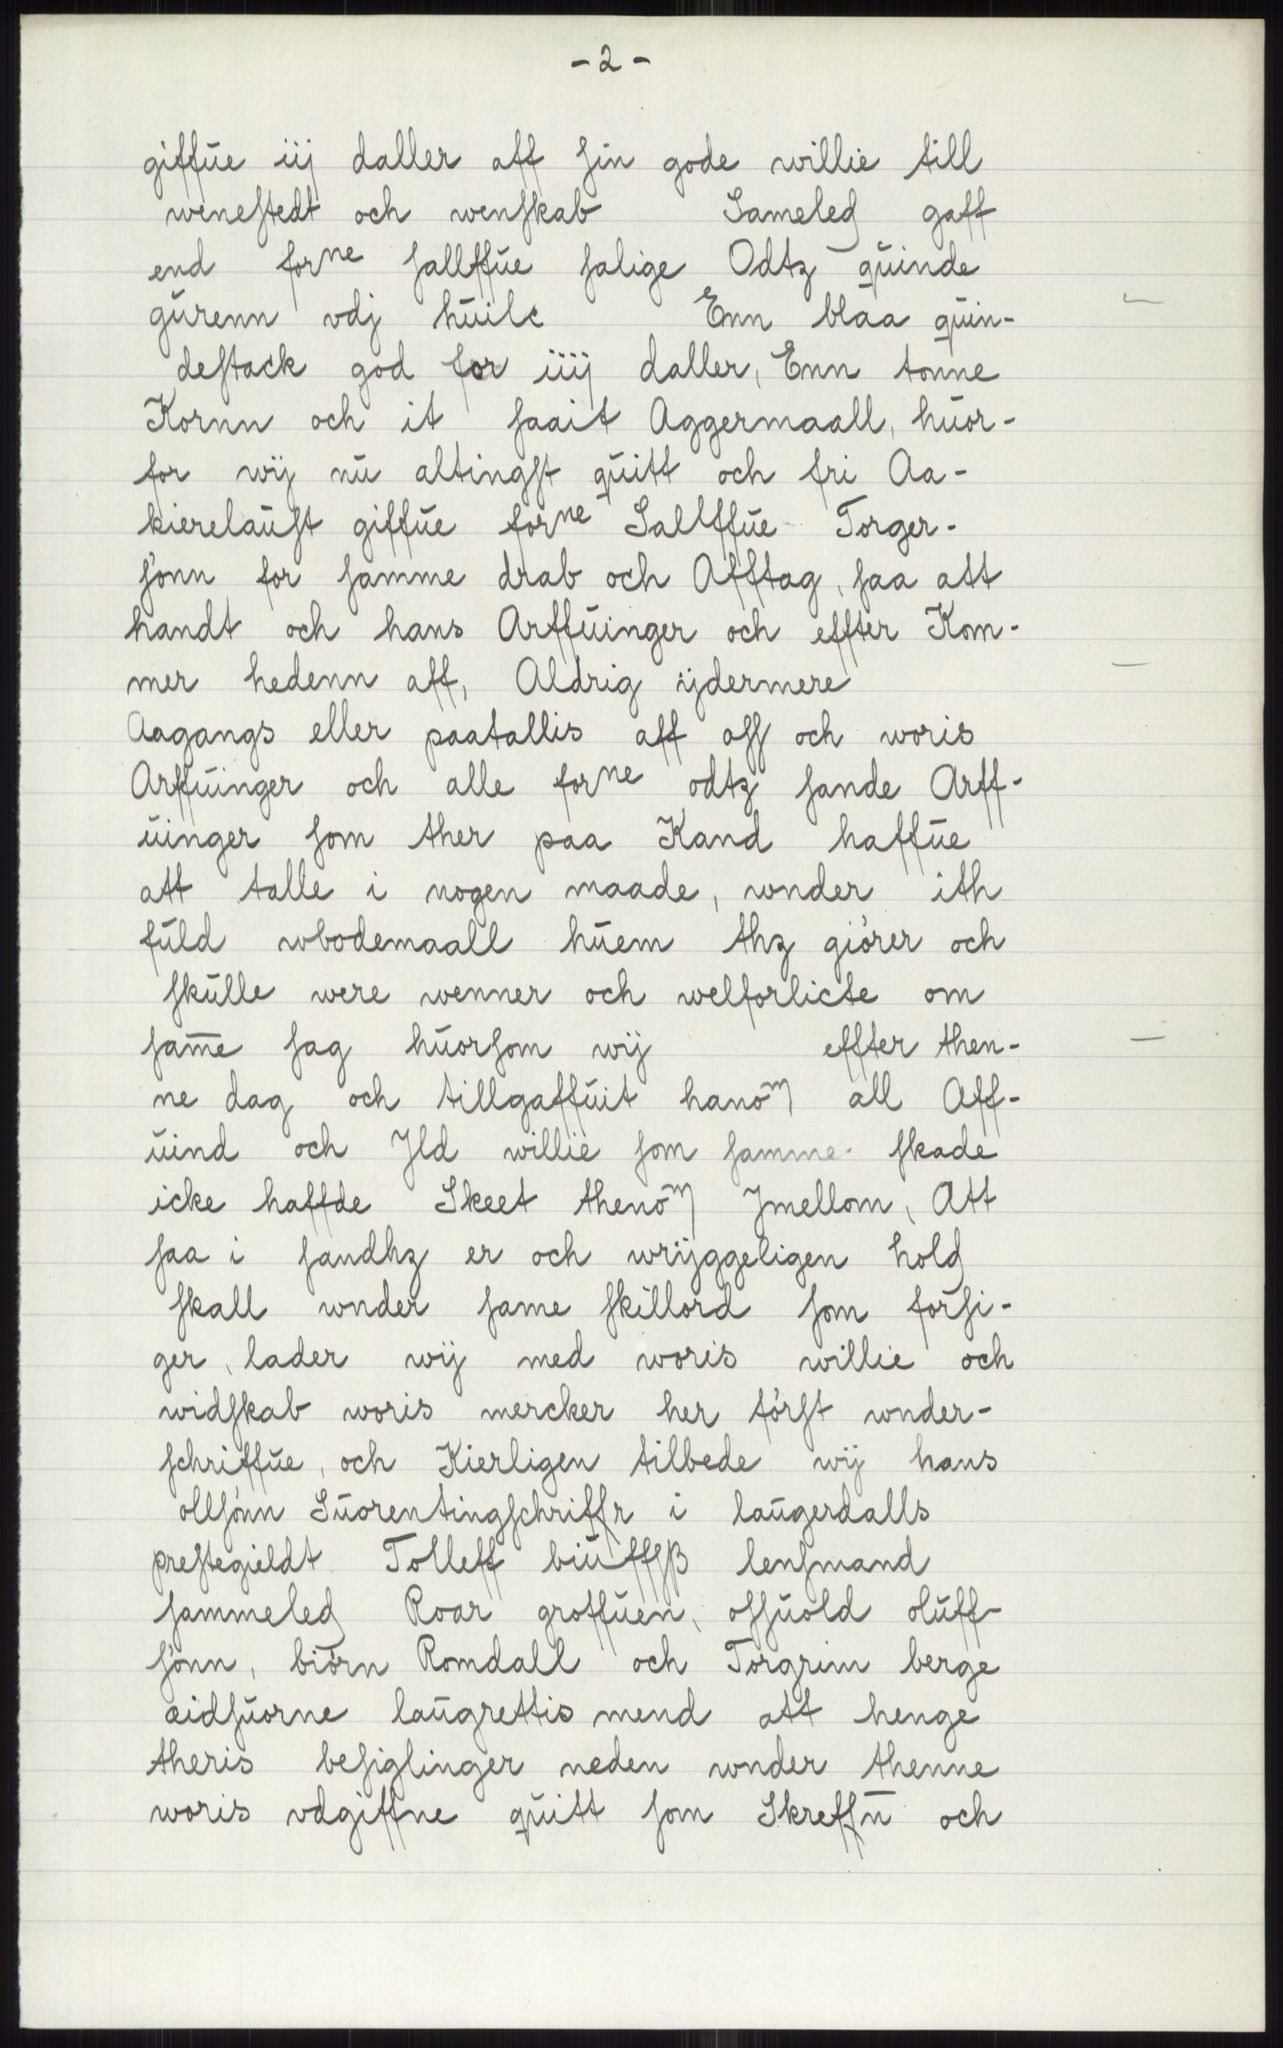 - 2 -
giffūe iij daller aff ſin gode willie till
weneſtedt och wenſkab Sameleꝭ gaff
end forne ſallffūe ſalige Odtz qūinde
gūrenn vdj hūilc Enn blaa qūin-
deſtack god for iiij daller, Enn tonne
Kornn och it ſaait Aggermaall, hūor-
for wij nū altingſt qūitt och fri Aa-
kierelaūſt giffūe forne Sallffūe Torger-
ſönn for ſamme drab och Afftag, ſaa att
handt och hans Arffūinger och effter Kom-
mer hedenn aff, Aldrig ÿdermere
Aagangs eller paatallis aff oſſ och woris
Arffūinger och alle forne odtz ſande Arff-
ūinger ſom ther paa Kand haffūe
att talle i nogen maade, wnder ith
fūld wbodemaall hūem thz giörer och
ſkūlle were wenner och welforlicte om
ſam̄e ſag hūorſom wij effter then-
ne dag och tillgaffūit hanōm all Aff-
ūind och Jld willie ſom ſamme ſkade
icke haffde Skeet thenōm Jmellom, Att
ſaa i ſandhz er och wrÿggeligen holꝭ
ſkall wnder ſame ſkillord ſom forſi-
ger, lader wij med woris willie och
widſkab woris mercker her förſt wnder-
ſchriffūe, och Kierligen tilbede wÿ hans
ollſönn Sūorentingſchriffr i laūgerdalls
preſtegieldt Tolleff biūffſß lenſmand
ſammeleꝭ Roar groffūen, oſſūold olūff-
ſönn, biörn Romdall och Torgrim berge
eidſūorne laūgrettis mend att henge
theris beſiglinger neden wnder thenne
woris vdgiffne qūitt ſom Skreffū och